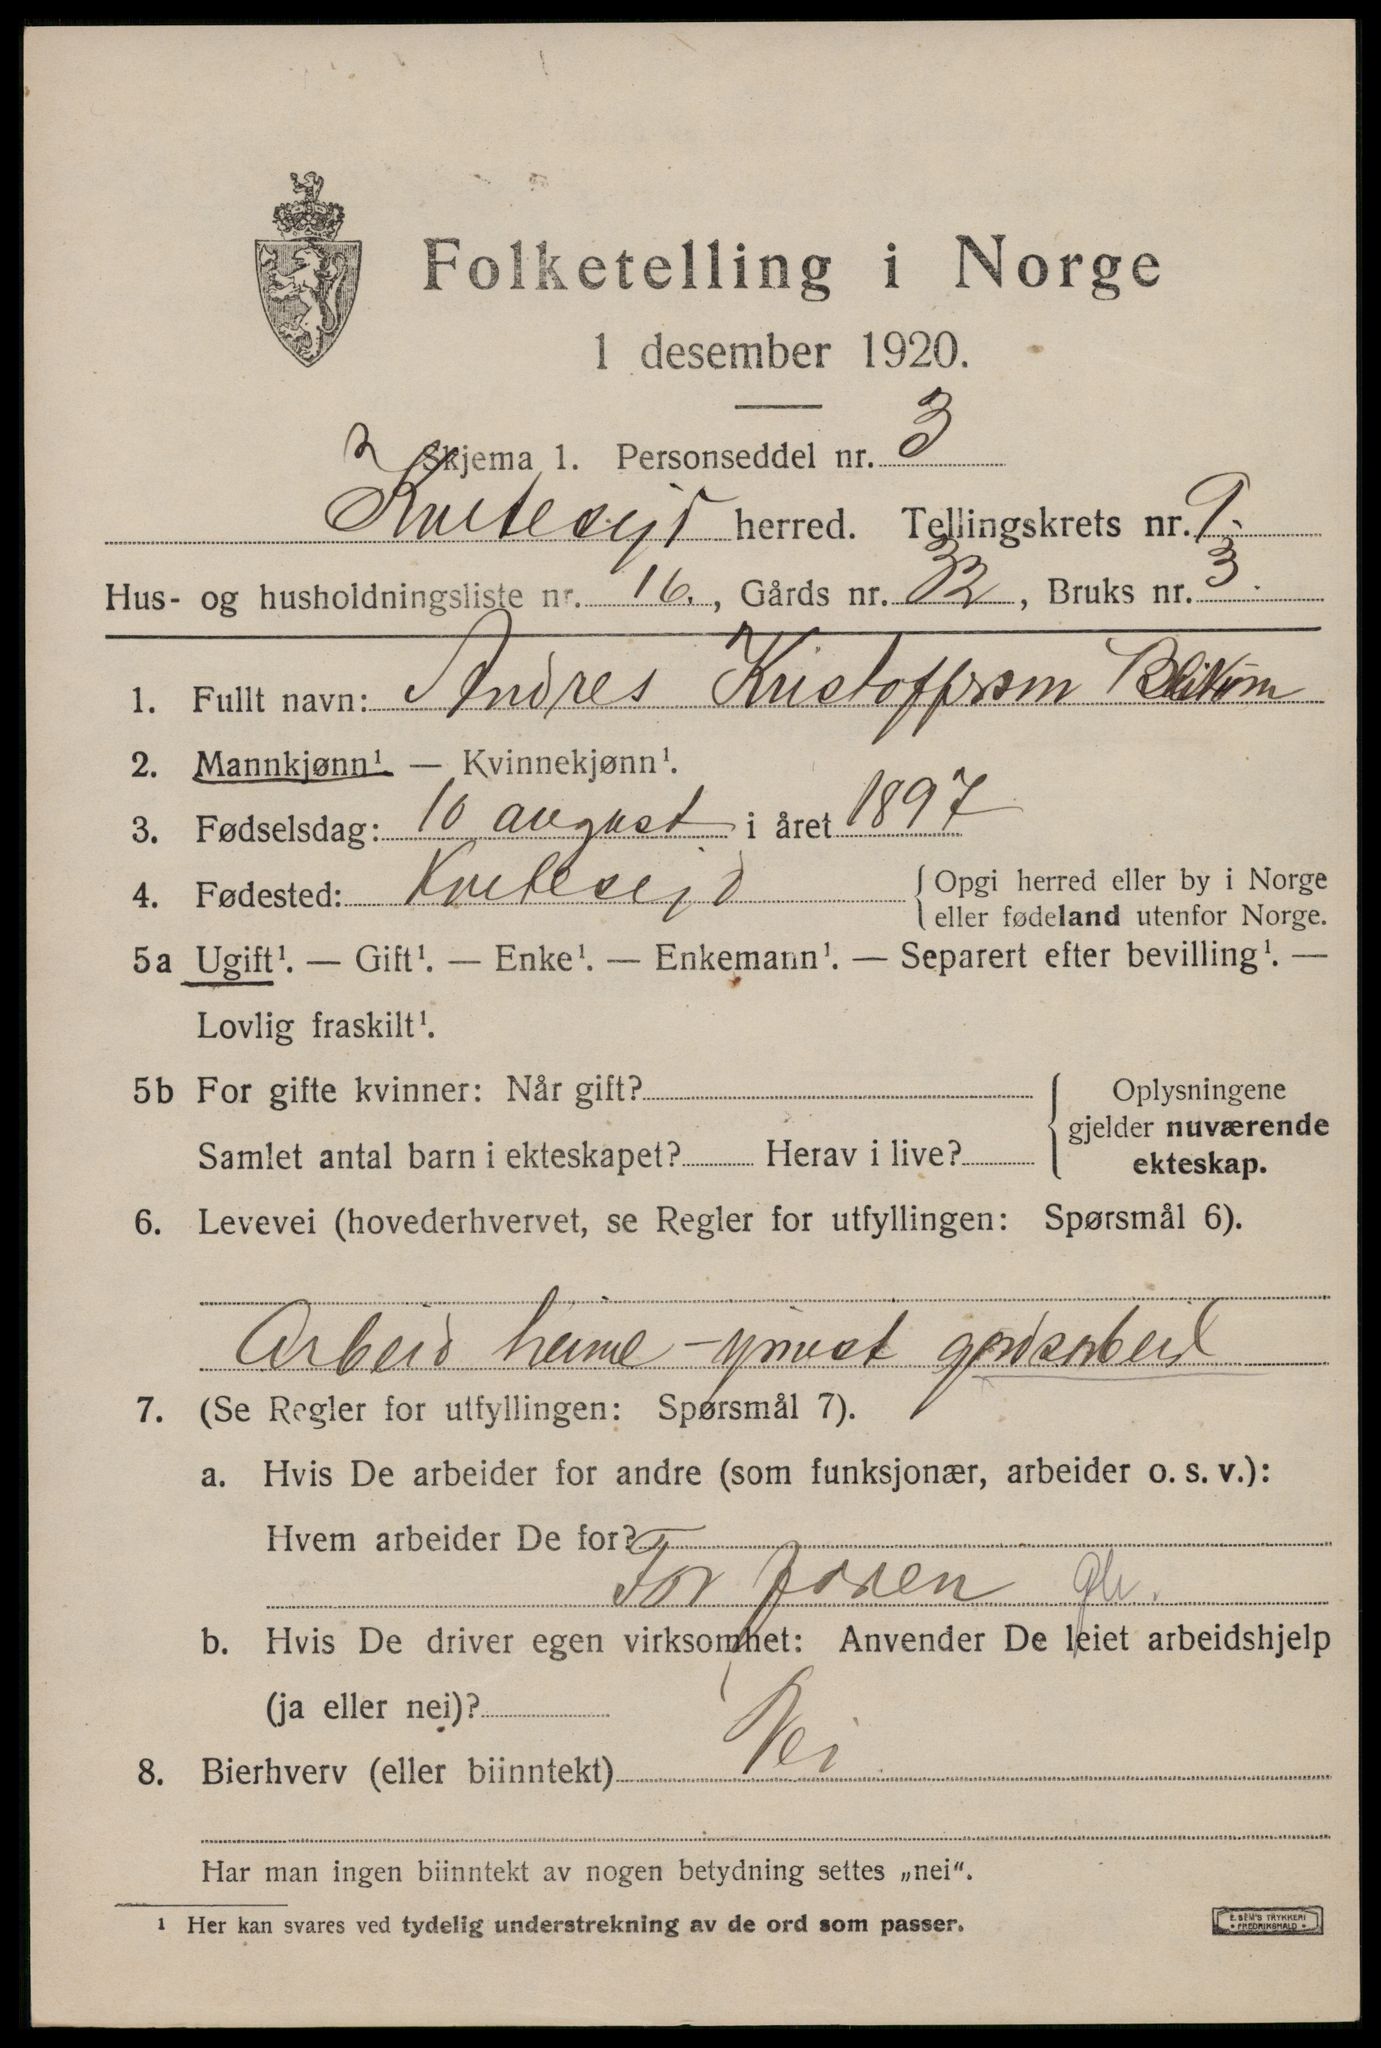 Folketelling i Norge
1 desember 1920.
Skjema 1. Personseddel nr. 3
Kvitesejd herred. Tellingskrets nr. 9.
Hus- og husholdningsliste nr. 16., Gårds nr. 32, Bruks nr. 3.
1. Fullt navn: Andres Kristoffersen
2. Mannkjønn¹ — Kvinnekjønn¹.
3. Fødselsdag: 10 august i året 1897
4. Fødested: Kvitesejd { Opgi herred eller by i Norge
eller fødeland utenfor Norge.
5a Ugift¹. — Gift¹. — Enke¹. — Enkemann¹. — Separert efter bevilling¹. —
Lovlig fraskilt¹.
5b For gifte kvinner: Når gift? { Oplysningene
gjelder nuværende
Samlet antal barn i ekteskapet? Herav i live? ekteskap.
6. Levevei (hovederhvervet, se Regler for utfyllingen: Spørsmål 6).
Arbeid heime - ymest gardsarbeid
7. (Se Regler for utfyllingen: Spørsmål 7).
a. Hvis De arbeider for andre (som funksjonær, arbeider o. s. v.):
Hvem arbeider De for?
For faren
b. Hvis De driver egen virksomhet: Anvender De leiet arbeidshjelp
(ja eller nei)?
8. Bierhverv (eller biinntekt) Nei
Har man ingen biinntekt av nogen betydning settes „nei“.
¹ Her kan svares ved tydelig understrekning av de ord som passer.
E. SEM'S TRYKKERI
• FREDRIKSHALD •